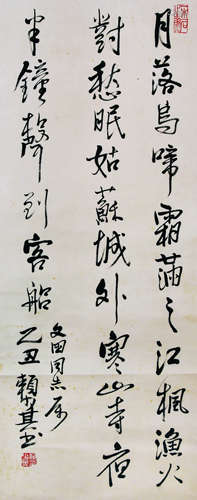 月落烏啼霜滿天江楓漁火
對愁眠姑蘇城外寒山寺夜
半鐘聲到客船
文田同志属
乙丑賴基书